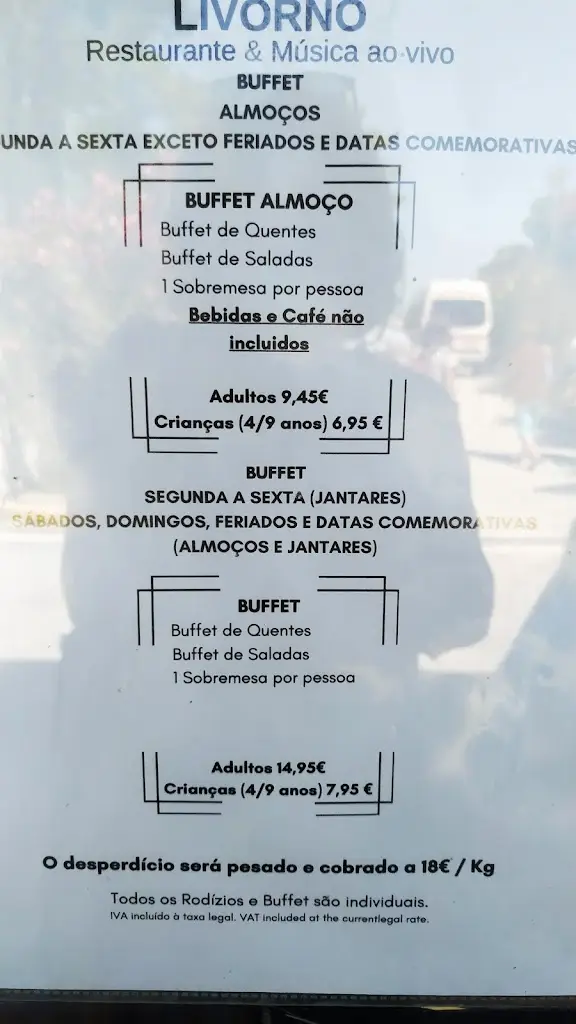 LIVORNO
Restaurante & Música ao vivo
BUFFET
ALMOÇOS
UNDA A SEXTA EXCETO FERIADOS E DATAS COMEMORATIVAS
BUFFET ALMOÇO
Buffet de Quentes
Buffet de Saladas
1 Sobremesa por pessoa
Bebidas e Café não
incluidos
Adultos 9,45€
Crianças (4/9 anos) 6,95 €
BUFFET
SEGUNDA A SEXTA (JANTARES)
SÁBADOS, DOMINGOS, FERIADOS E DATAS COMEMORATIVAS
(ALMOÇOS E JANTARES)
BUFFET
Buffet de Quentes
Buffet de Saladas
1 Sobremesa por pessoa
Adultos 14,95€
Crianças (4/9 anos) 7,95 €
O desperdício será pesado e cobrado a 18€ / Kg
Todos os Rodízios e Buffet são individuais.
IVA incluído à taxa legal. VAT included at the currentlegal rate.